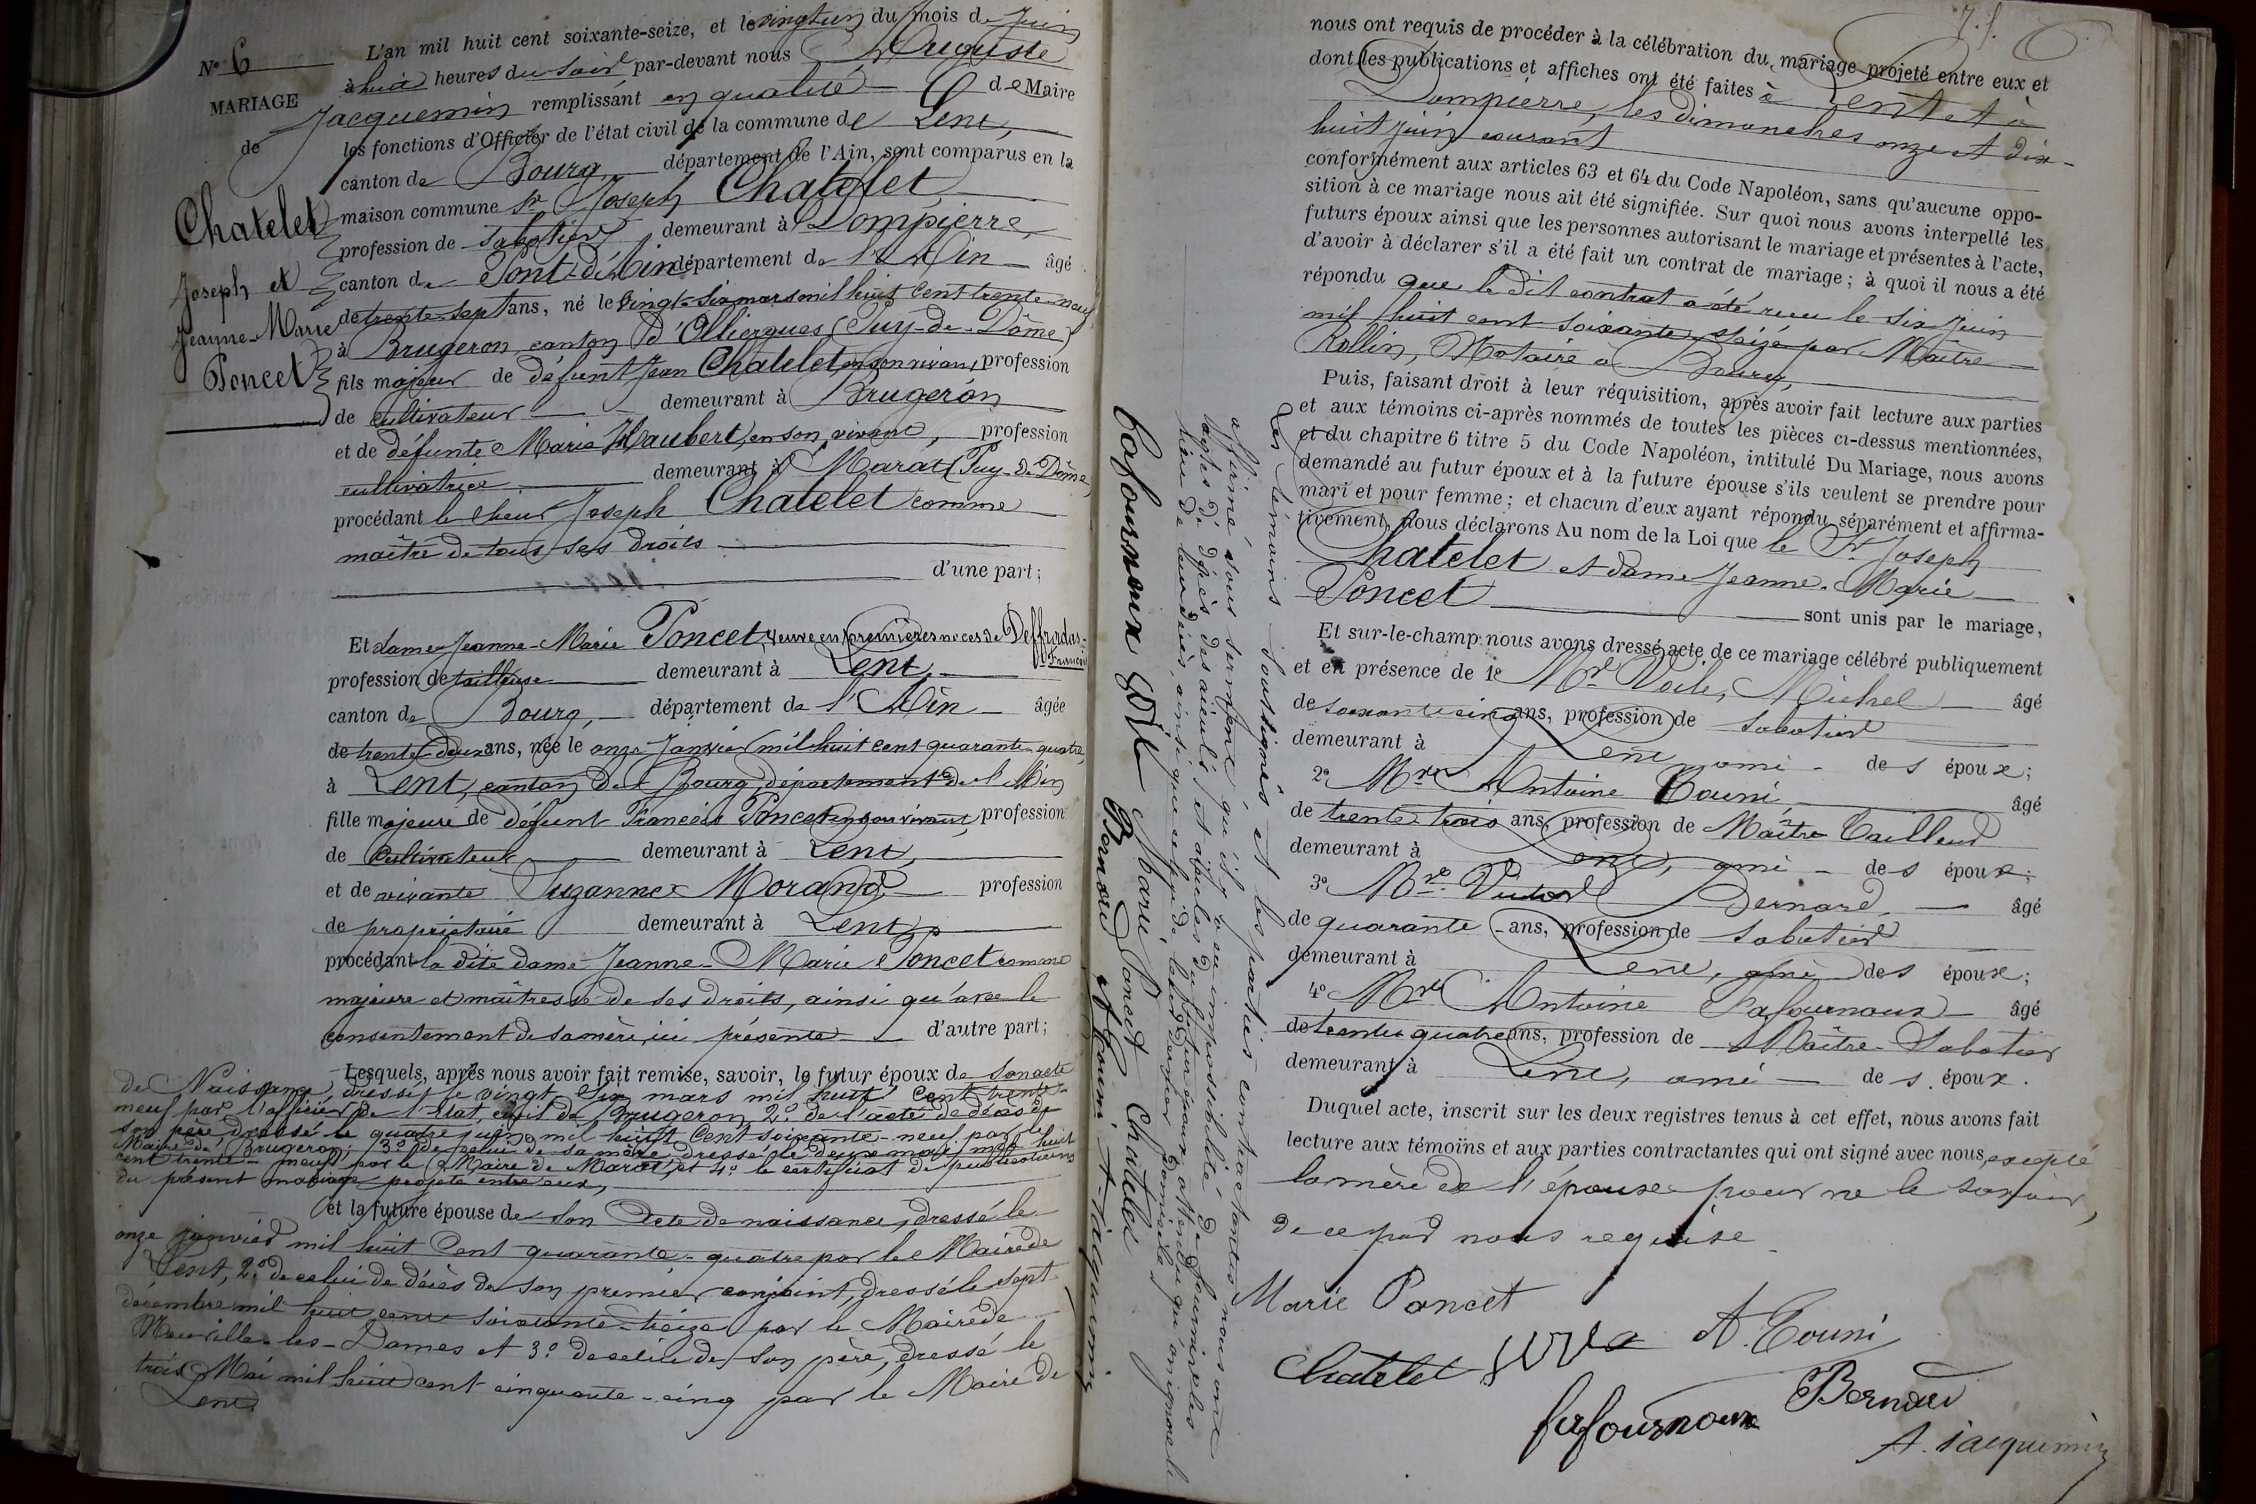 N° 6
MARIAGE
de
Chatelet
Joseph et
Jeanne-Marie
Poncet
L'an mil huit cent soixante-seize, et le vingt un du mois de Juin
à huit heures du soir par-devant nous Auguste
Jacquemin remplissant en qualité de Maire
les fonctions d'Officier de l'état civil de la commune de Lent,
canton de Bourg département de l'Ain, sont comparus en la
maison commune Sr Joseph Chatelet
profession de sabotier demeurant à Dompierre,
canton de Pont-d'Ain département de l'Ain âgé
de trente-sept ans, né le vingt-six mars mil huit cent trente-neuf,
à Brugeron, canton d'Olliergues (Puy-de-Dôme)
fils majeur de défunt Jean Chatelet en son vivant, profession
de cultivateur demeurant à Brugeron
et de défunte Marie Haubert, en son vivant, profession
cultivatrice demeurant à Marat (Puy-de-Dôme)
procédant le sieur Joseph Chatelet comme
maître de tous ses droits
d'une part;
Et dame Jeanne-Marie Poncet, veuve en premières noces de Deffradas-
François
profession de tailleuse demeurant à Lent,
canton de Bourg, département de l'Ain âgée
de trente-deux ans, née le onze Janvier mil huit cent quarante-quatre,
à Lent, canton de Bourg, département de l'Ain
fille majeure de défunt François Poncet en son vivant, profession
de cultivateur demeurant à Lent,
et de vivante Suzanne Morand profession
de propriétaire demeurant à Lent,
procédant la dite dame Jeanne-Marie Poncet comme
majeure et maîtresse de ses droits, ainsi qu'avec le
consentement de sa mère, ici présente d'autre part;
Lesquels, après nous avoir fait remise, savoir, le futur époux de son acte
de Naissance, dressé le vingt six mars mil huit cent trente-
neuf par l'officier de l'Etat civil de Brugeron, 2° de l'acte de décès de
son père dressé le quatre juin mil huit cent soixante-neuf par le
Maire de Brugeron, 3° de celui de sa mère dressé le deux mars mil huit
cent trente-neuf par le Maire de Marat, et 4° le certificat de publications
du présent mariage projeté entre eux,
et la future épouse de son Acte de naissance, dressé le
onze janvier mil huit cent quarante-quatre par le Maire de
Lent, 2° de celui de décès de son premier conjoint, dressé le sept
décembre mil huit cent soixante-treize par le Maire de
Neuville-les-Dames et 3° de celui de son père, dressé le
trois Mai mil huit cent cinquante-cinq par le Maire de
Lent
nous ont requis de procéder à la célébration du mariage projeté entre eux et
dont les publications et affiches ont été faites à Lent et à
Dompierre, les dimanches onze et dix-
huit juin courant
conformément aux articles 63 et 64 du Code Napoléon, sans qu'aucune oppo-
sition à ce mariage nous ait été signifiée. Sur quoi nous avons interpellé les
futurs époux ainsi que les personnes autorisant le mariage et présentes à l'acte,
d'avoir à déclarer s'il a été fait un contrat de mariage; à quoi il nous a été
répondu que le dit contrat a été reçu le six Juin
mil huit cent soixante-seize par Maître
Rollin, Notaire à Bourg,
Puis, faisant droit à leur réquisition, après avoir fait lecture aux parties
et aux témoins ci-après nommés de toutes les pièces ci-dessus mentionnées,
et du chapitre 6 titre 5 du Code Napoléon, intitulé Du Mariage, nous avons
demandé au futur époux et à la future épouse s'ils veulent se prendre pour
mari et pour femme; et chacun d'eux ayant répondu séparément et affirma-
tivement, nous déclarons Au nom de la Loi que le Sr Joseph
Chatelet et dame Jeanne-Marie
Poncet
sont unis par le mariage,
Et sur-le-champ nous avons dressé acte de ce mariage célébré publiquement
et en présence de 1° Mr Michel âgé
de soixante cinq ans, profession de sabotier
demeurant à Lent, ami des époux;
2° Mr Antoine Couni, âgé
de trente-trois ans, profession de Maître Tailleur
demeurant à Lent, ami des époux;
3° Mr Victor Bernard, âgé
de quarante ans, profession de sabotier
demeurant à Lent, ami des époux;
4° Mr Antoine Lafournoux âgé
de trente quatre ans, profession de Maître-Sabotier
demeurant à Lent, ami des époux.
Duquel acte, inscrit sur les deux registres tenus à cet effet, nous avons fait
lecture aux témoins et aux parties contractantes qui ont signé avec nous, excepté
la mère de l'épouse pour ne le savoir,
de ce par nous requise
Marie Poncet
A. Couni
Chatelet
Bernard
Lafournoux
A. Jacquemin
Les témoins soussignés et les parties contractantes nous ont
affirmé sous serment qu'il y a eu impossibilité de fournir les
actes de décès des aïeuls et aïeules du futur époux, attendu qu'on ignore le
lieu de leur décès, ainsi que celui de leur dernier domicile
Lafournoux Marie Poncet Chatelet
Bernard A Couni A. Jacquemin